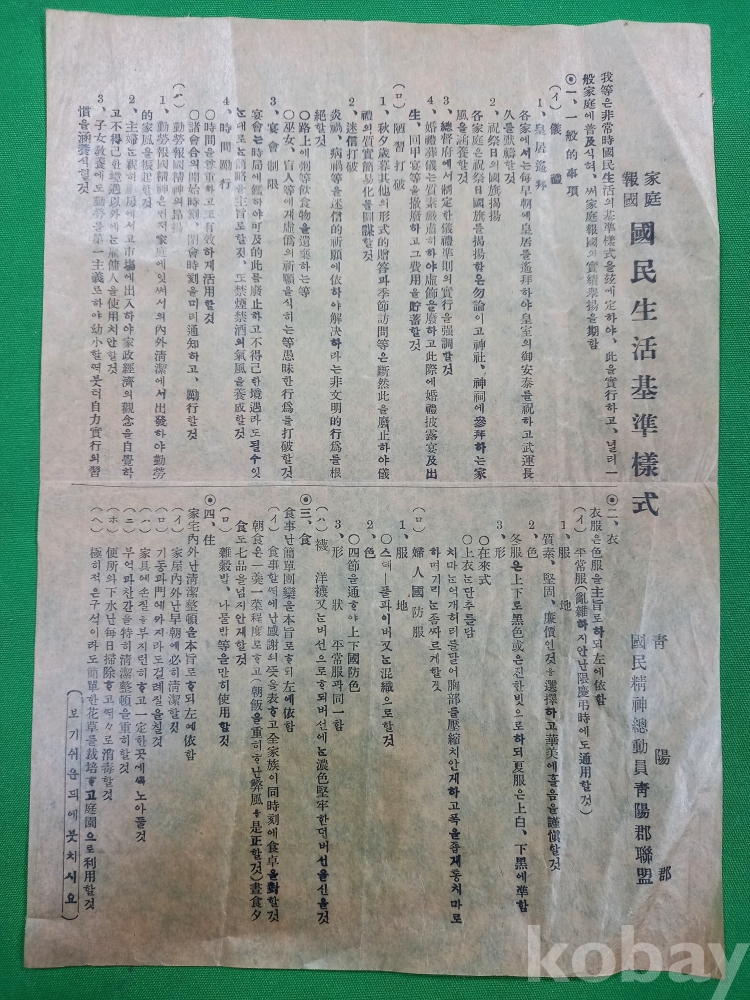 家庭
報國 國民生活基準樣式
靑陽郡
國民精神總動員靑陽郡聯盟
我等은非常時國民生活의基準樣式을玆에定하야、此을實行하고、널리一
般家庭에普及식혀、써家庭報國의實績擧揚을期함
◉一、一般的事項
(イ) 儀禮
1、皇居遙拜
各家에서는每早朝에皇居를遙拜하야皇室의御安泰를祝하고武運長
久를默禱할것
2、祝祭日의國旗揭揚
各家庭은祝祭日國旗를揭揚함은勿論이고神社、神祠에參拜하는家
風을涵養할것
3、總督府에서制定한儀禮準則의實行을强調할것
4、婚禮葬儀는質素嚴肅히하야虛飾을廢하고此際에婚禮披露宴及出
生、回甲宴等을撤廢하고그費用을貯蓄할것
(ロ) 陋習打破
1、秋夕歲暮其他의形式的贈答과季節訪問等은斷然此을廢止하야儀
禮의質實簡易化을圖謀할것
2、迷信打破
災禍、病禍等을迷信的祈願에依하야解決하라는非文明的行爲를根
絕할것
〇路上에粥等飮食物을遺棄하는等
〇巫女、盲人等에게虛僞의祈願을식히는等愚昧한行爲를打破할것
3、宴會制限
宴會는時局에鑑하야可及的此를廢止하고不得己한境遇라도될수잇
는대로簡略을主旨로할것、또禁煙禁酒의氣風을養成할것
4、時間勵行
〇時間을尊重하고고有效하게活用할것
〇諸會合의開始時刻、閉會時刻을미리通知하고、勵行할것
(ハ) 勤勞報國精神의昻揚
1、勤勞報國精神은먼저家庭에잇써서의內外淸潔에서出發하야勤勞
的家風을振起할것
2、主婦는親히廚房에서고市場에出入하야家政經濟의觀念을自覺하
고不得己한境遇以外에는雇傭人을使用치안할것
3、子女敎養에도勤勞를第一主義로하야幼小할여븟허自力實行의習
慣을涵養식힐것
◉二、衣
衣服은色服을主旨로하되左에依함
(イ) 平常服(亂雜하지안난限慶弔時에도通用할것)
1、服地
質素、堅固、廉價인것을選擇하고華美에흘음을謹愼할것
2、色
冬服은上下로黑色或은진한빗으로하되夏服은上白、下黑에準함
3、形
〇在來式
〇上衣는단추를담
치마는억개허리를달어胸部를壓縮치안게하고폭을좁게통치마로
하며기리는좀짜르게할것
(ロ) 婦人國防服
1、服地
〇스예ー플파이버又는混織으로할것
2、色
〇四節을通하야上下國防色
3、形狀 平常服과同一함
(ハ) 襪 洋襪又는버선으로하되버선에는濃色堅牢한덧버선을신을것
◉三、食
食事난簡單團欒을本旨로하되左에依함
(イ) 食事할에난感謝의뜻을表하고全家族이同時刻에食卓을對할것
朝食은一羹一菜程度로하고(朝飯을重히하난弊風을是正할것)晝食夕
食도七品을넘지안케할것
(ロ) 雜穀밥、나물밥等을만히使用할것
◉四、住
家宅內外난淸潔整頓을本旨로하되左에依함
(イ) 家屋內外난早朝에必히淸潔할것
(ロ) 기동과門에와지라도걸레질을칠것
(ハ) 家具에손질을부지런히하고一定한곳에노아둘것
(ニ) 부억과찬간을特히淸潔整頓을重히할것
(ホ) 便所와下水난每日掃除하고로消毒할것
(ヘ) 極히적은구석이라도簡單한花草를栽培하고庭園으로利用할것
(보기쉬운듸에븟치시요)
kobay